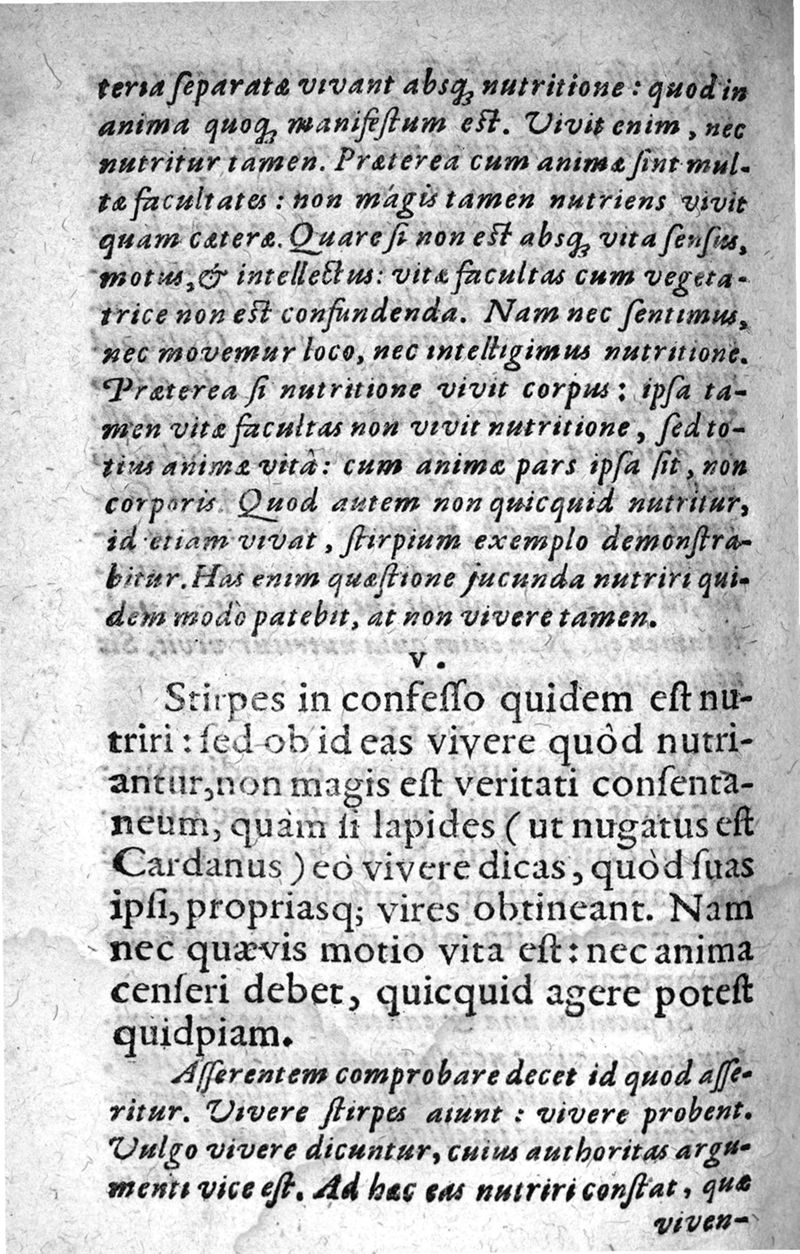 teria ſeparatæ vivant absq; nutritione: quod in
anima quoq; manifeſtum eſt. Vivit enim, nec
nutritur tamen. Præterea cum animæ ſint mul-
tæ facultates: non mágis tamen nutriens vivit
quam cæteræ. Quare ſi non eſt absq; vita ſenſus,
motus, & intellectus: vitæ facultas cum vegeta-
trice non eſt confundenda. Nam nec ſentimus,
nec movemur loco, nec intelligimus nutritione.
Præterea ſi nutritione vivit corpus: ipſa ta-
men vitæ facultas non vivit nutritione, ſed to-
tius animæ vitâ: cum animæ pars ipſa ſit, non
corporis. Quod autem non quicquid nutritur,
id etiam vivat, ſtirpium exemplo demonſtra-
bitur. Has enim quæſtione jucunda nutriri qui-
dem modò patebit, at non vivere tamen.
V.
Stirpes in confeſſo quidem eſt nu-
triri: ſed ob id eas vivere quòd nutri-
antur, non magis eſt veritati conſenta-
neum, quàm ſi lapides (ut nugatus eſt
Cardanus) eò vivere dicas, quòd ſuas
ipſi, propriasq; vires obtineant. Nam
nec quævis motio vita eſt: nec anima
cenſeri debet, quicquid agere poteſt
quidpiam.
Aſſerentem comprobare decet id quod aſſe-
ritur. Vivere ſtirpes aiunt: vivere probent.
Vulgo vivere dicuntur, cuius authoritas argu-
menti vice eſt. Ad hæc eas nutriri conſtat, quæ
viven-